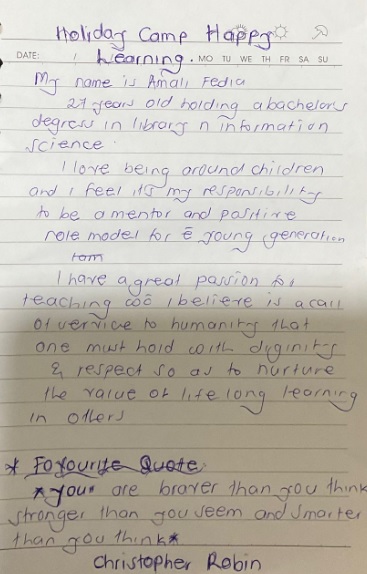 Holiday Camp Happy
DATE: Learning. MO TU WE TH FR SA SU
My name is Amali Fedia
27 years old holding a bachelors
degress in library n information
science.
I love being around children
and I feel its my responsibility
to be a mentor and positive
role model for ē young generation
I have a great passion for
teaching wc I believe is a call
of service to humanity that
one must hold with diginity
& respect so as to nurture
the value of life long learning
in others
* Favourite Quote
*you* are braver than you think
stronger than you seem and smarter
than you think*
Christopher Robin